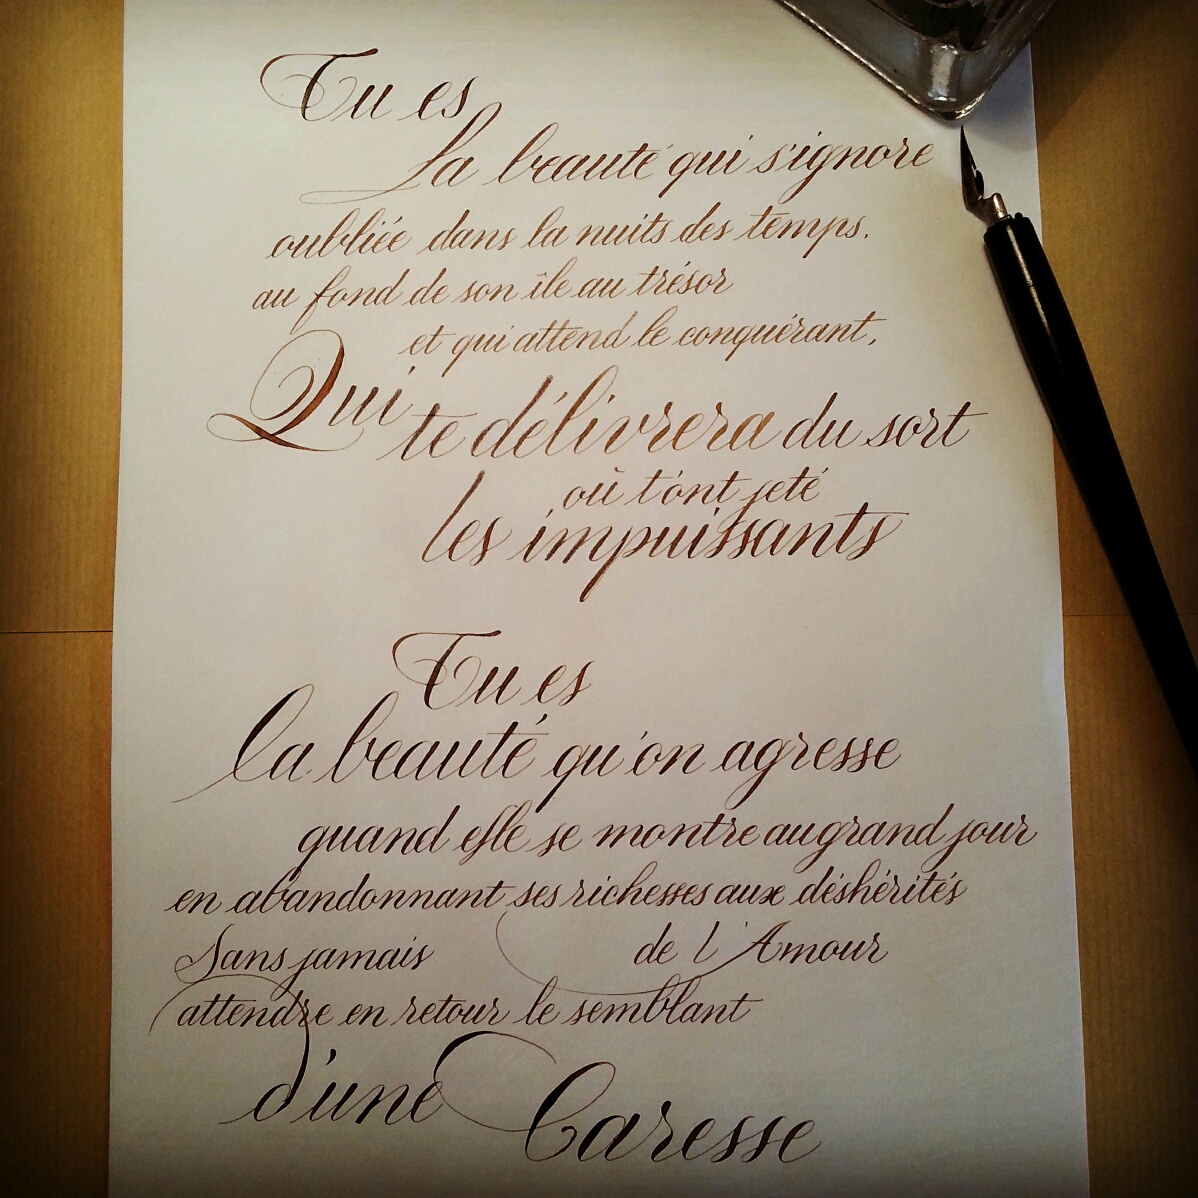 Tu es
la beauté qui s'ignore
oubliée dans la nuits des temps.
au fond de son île au trésor
et qui attend le conquérant,
Qui te délivrera du sort
où t'ont jeté
les impuissants
Tu es
la beauté qu'on agresse
quand elle se montre au grand jour
en abandonnant ses richesses aux déshérités
Sans jamais de l'Amour
attendre en retour le semblant
d'une Caresse